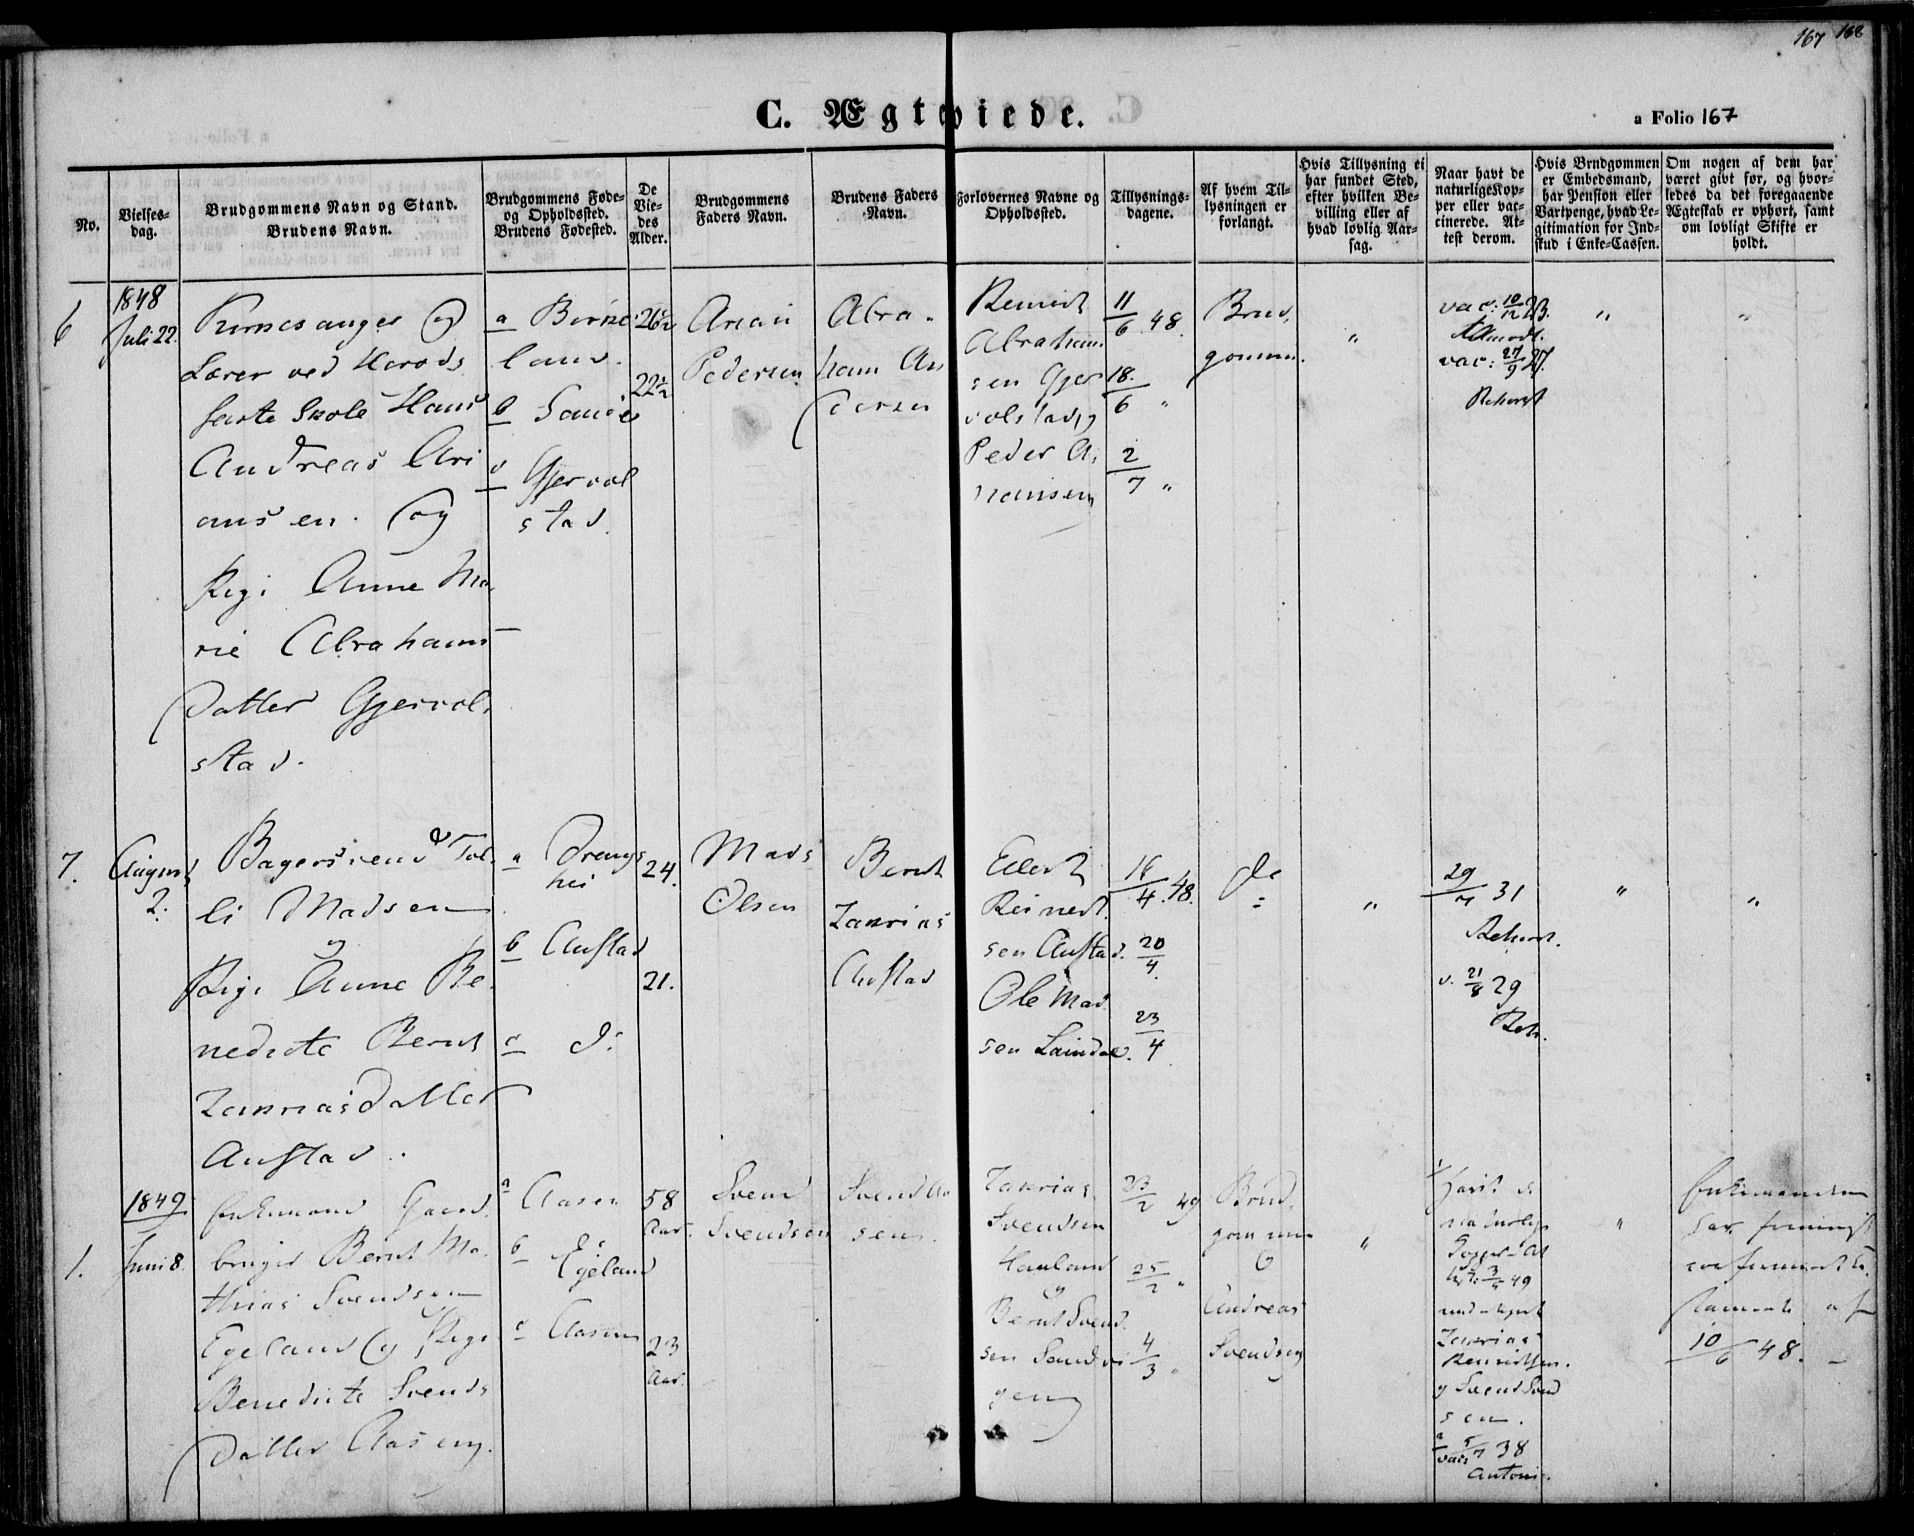 167 168
C. Ægteviede.
a Folio 167
No.
Vielses-
dag.
Brudgommens Navn og Stand.
Brudens Navn.
Brudgommens Føde-
og Opholdssted.
Brudens Fødested.
De
Vie-
des
Alder.
Brudgommens
Faders Navn.
Brudens Faders
Navn.
Forlovernes Navne og
Opholdssted.
Tillysnings-
dagene.
Af hvem Til-
lysningen er
forlangt.
Hvis Tillysning ei
har fundet Sted,
efter hvilken Be-
villing eller af
hvad lovlig Aar-
sag.
Naar havt de
naturlige Kop-
per eller vac-
cinerede. At-
test derom.
Hvis Brudgommen
er Embedsmand,
har Pension eller
Vartpenge, hvad Le-
gitimation for Ind-
skud i Enke-Cassen.
Om nogen af dem har
været givt før, og hvor-
ledes da det foregaaende
Ægteskab er ophørt, samt
om lovligt Skifte er
holdt.
6
1848
Juli 22.
Kirkesanger og
Lærer ved Herods
faste Skole Hans
Andreas Ari
ansen. og
Pige Anne Ma
rie Abrahams
Datter Gjervol
stad.
a Birke
land.
b
c Gjervol
stad.
26½
22½
Arian
Pedersen
Abra-
ham An
dersen
Reinert
Abraham
sen Gjer
volstad,
Peder A
riansen
11/6 48.
18/6 "
2/7 "
Brud,
gommen.
"
vac: 10/12 23.
vac: 27/9 27.
"
"
7.
August
2.
Bagersvend Tol
li Madsen
og
Pige Anne Be
nedicte Bernt
Zakriasdatter
Austad.
a Drengs
hei
b Austad
c do
24.
21.
Mads
Olsen
Bernt
Zakrias
Austad
Eilert
Reinert
sen Austad.
Ole Mad
sen
16/4 48.
20/4
23/4
do
"
29/7 31
v. 21/8 29
"
"
1.
1849
Juni 8.
Enkemand Gaard
bruger Bernt Ma
thias Svendsen
Egeland og Pige
Benedicte Svends
Datter Aasen.
a Aasen
b do
Egeland
c Aasen
58
Aar.
23
Aar.
Svend
Svendsen
Svend An
sen
Zakrias
Svendsen
Hauland
og
Bernt Svend
sen Sandvi
gen
23/2 49
25/2 "
4/3 "
Brud,
gommen
Andreas
Svendsen
"
Havt de
naturlige
Kopper - At
test 3/ 49
Zakrias
og Svend Svend
sen.
vac: 5/7 38
"
Enkemanden
har
10/6 48.